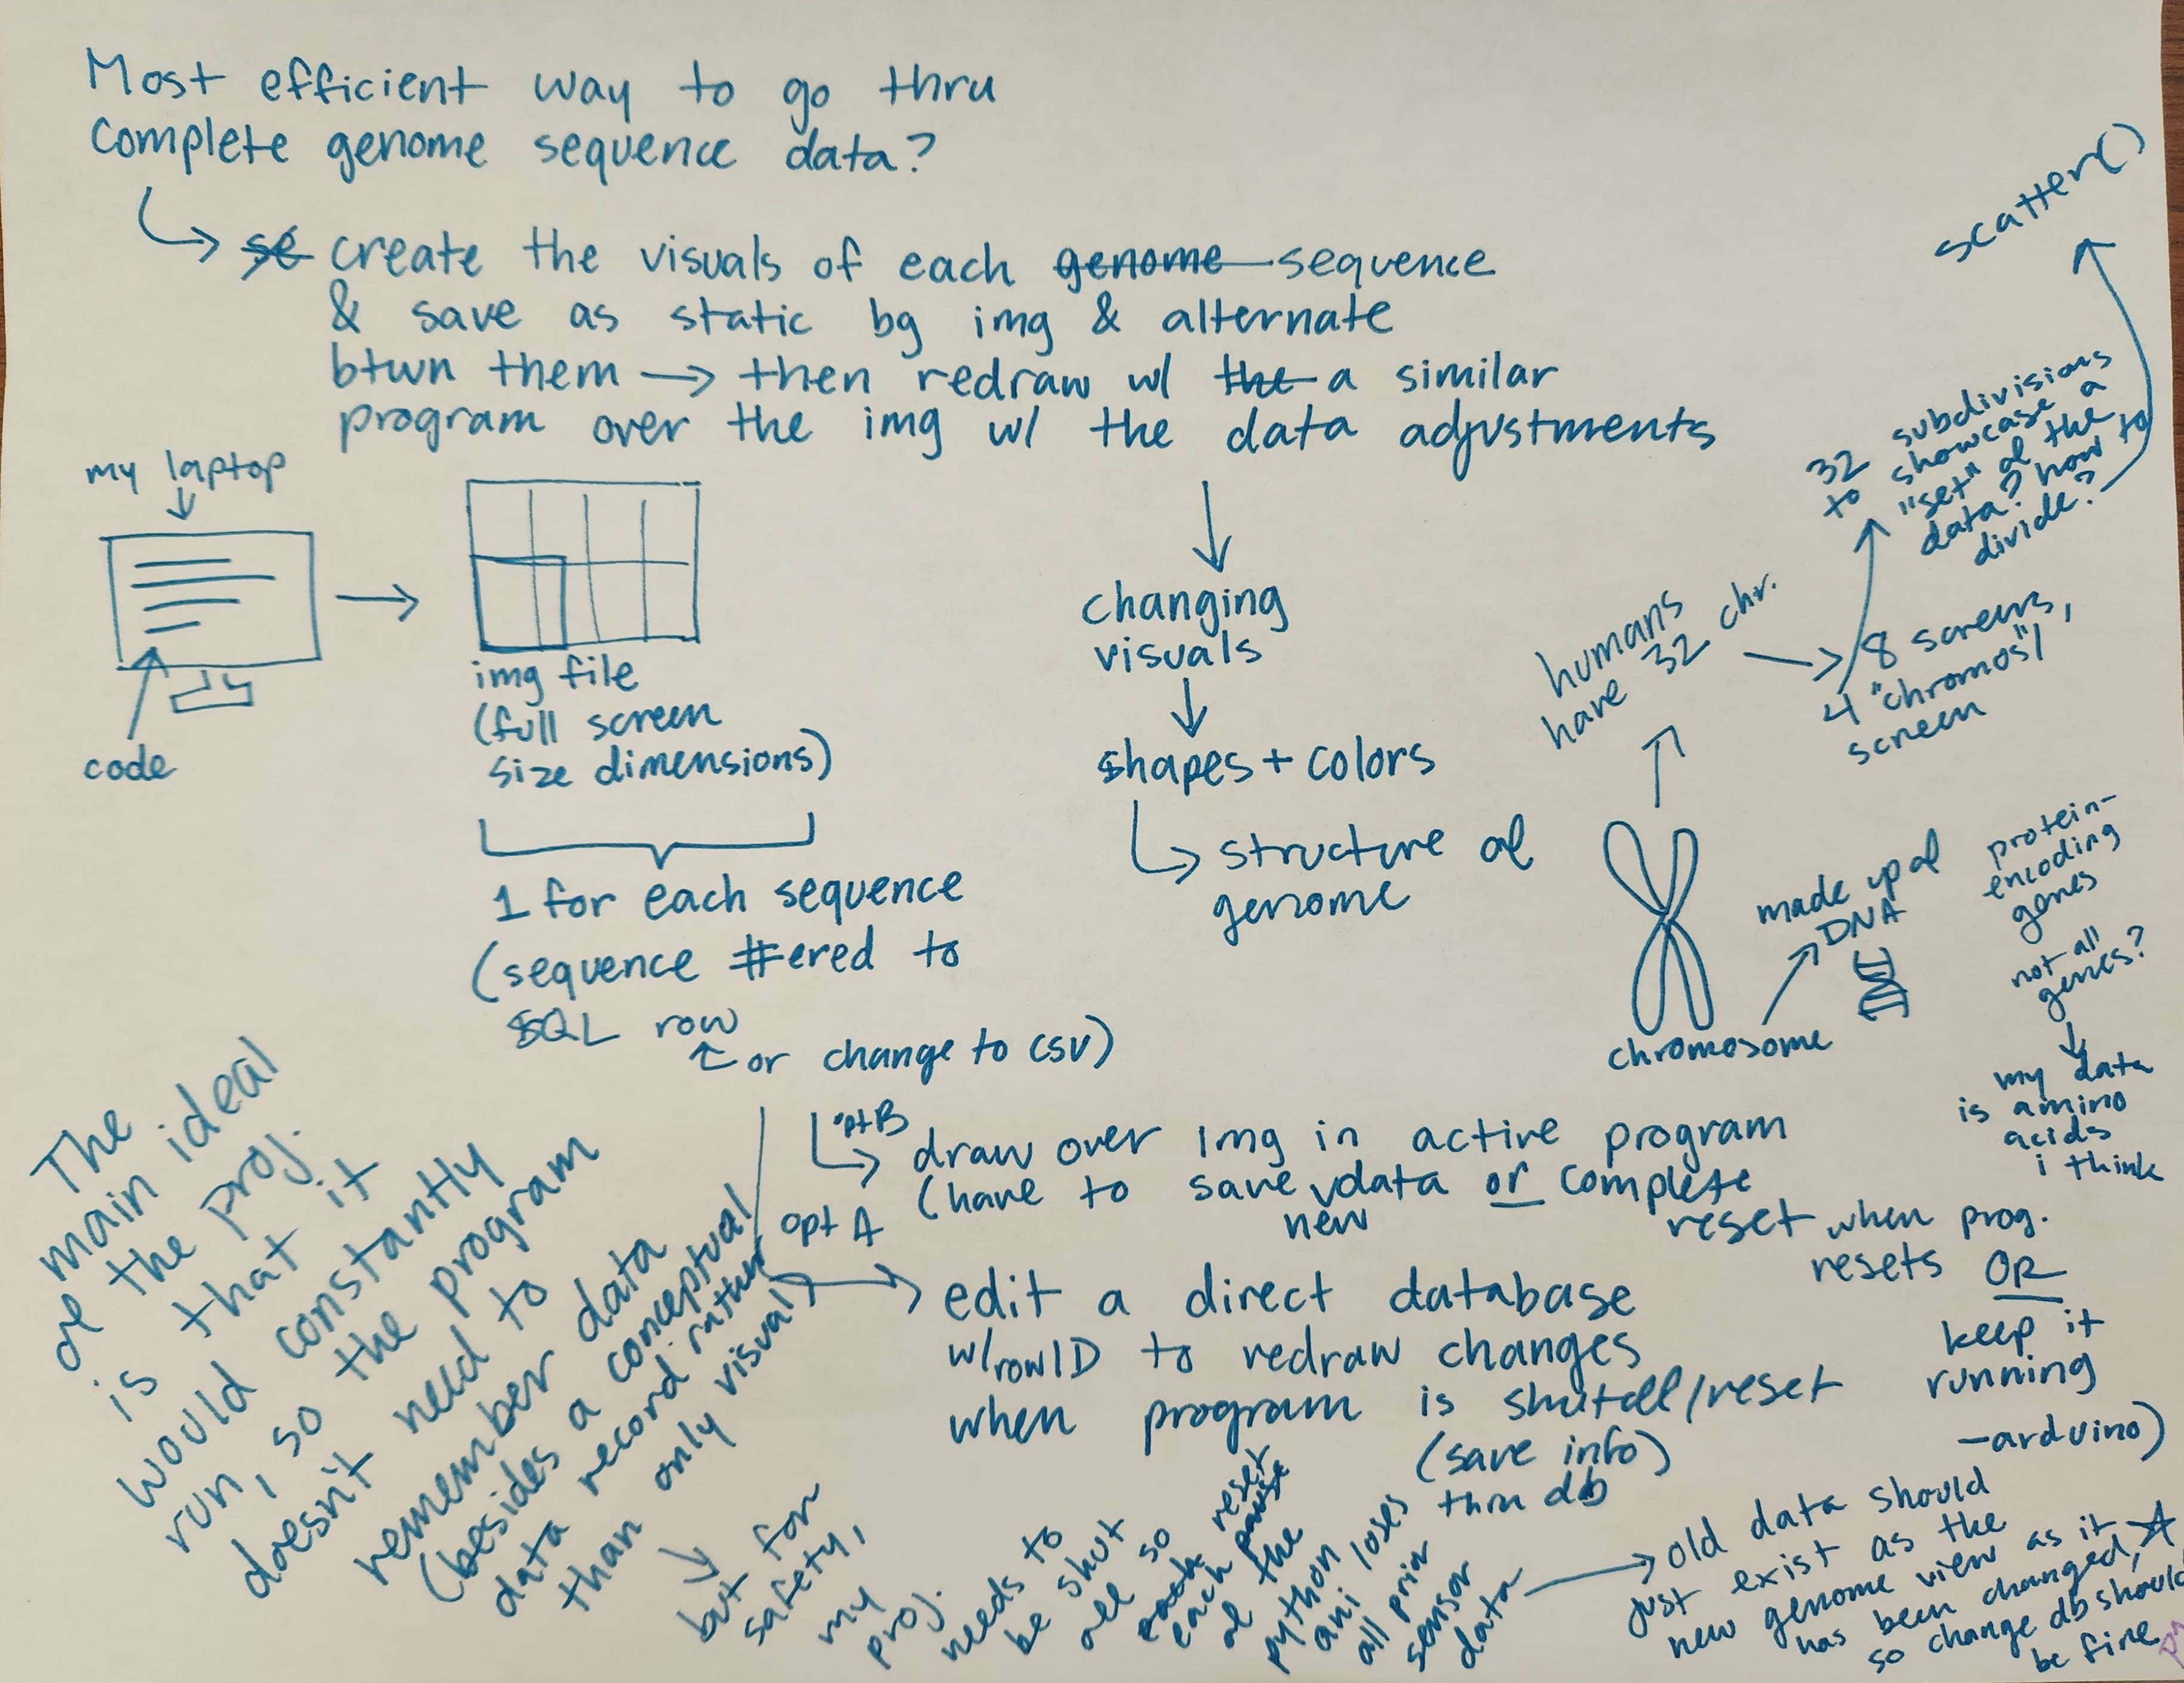 Most efficient way to go thru
complete genome sequence data?
se create the visuals of each genome sequence
& save as static bg img & alternate
btwn them → then redraw w/ the a similar
program over the img w/ the data adjustments
my laptop
code
img file
(full screen
size dimensions)
1 for each sequence
(sequence #ered to
SQL row
or change to csv)
changing
visuals
shapes + colors
structure of
genome
chromosome
made up of
DNA
humans
have 32 chr.
8 screens,
4 "chromos"/
screen
32 subdivisions
to showcase a
"set" of the
data? how to
divide?
scatter()
protein-
encoding
genes
not all
genes?
my data
is amino
acids
i think
opt B
draw over img in active program
(have to save new data or complete
reset when prog.
resets OR
keep it
running
- arduino)
opt A
edit a direct database
w/ rowID to redraw changes
when program is shutoff/reset
(save info)
thru db
The
main ideal
of the proj.
is that it
would constantly
run, so the program
doesn't need to
remember data
(besides a conceptual
data record rather
than only visual)
but for
safety,
my
proj.
needs to
be shut
off so
each reset
of the
python
ani loses
all prior
sensor
data
old data should
just exist as the
new genome view as it
has been changed,
so change db should
be fine